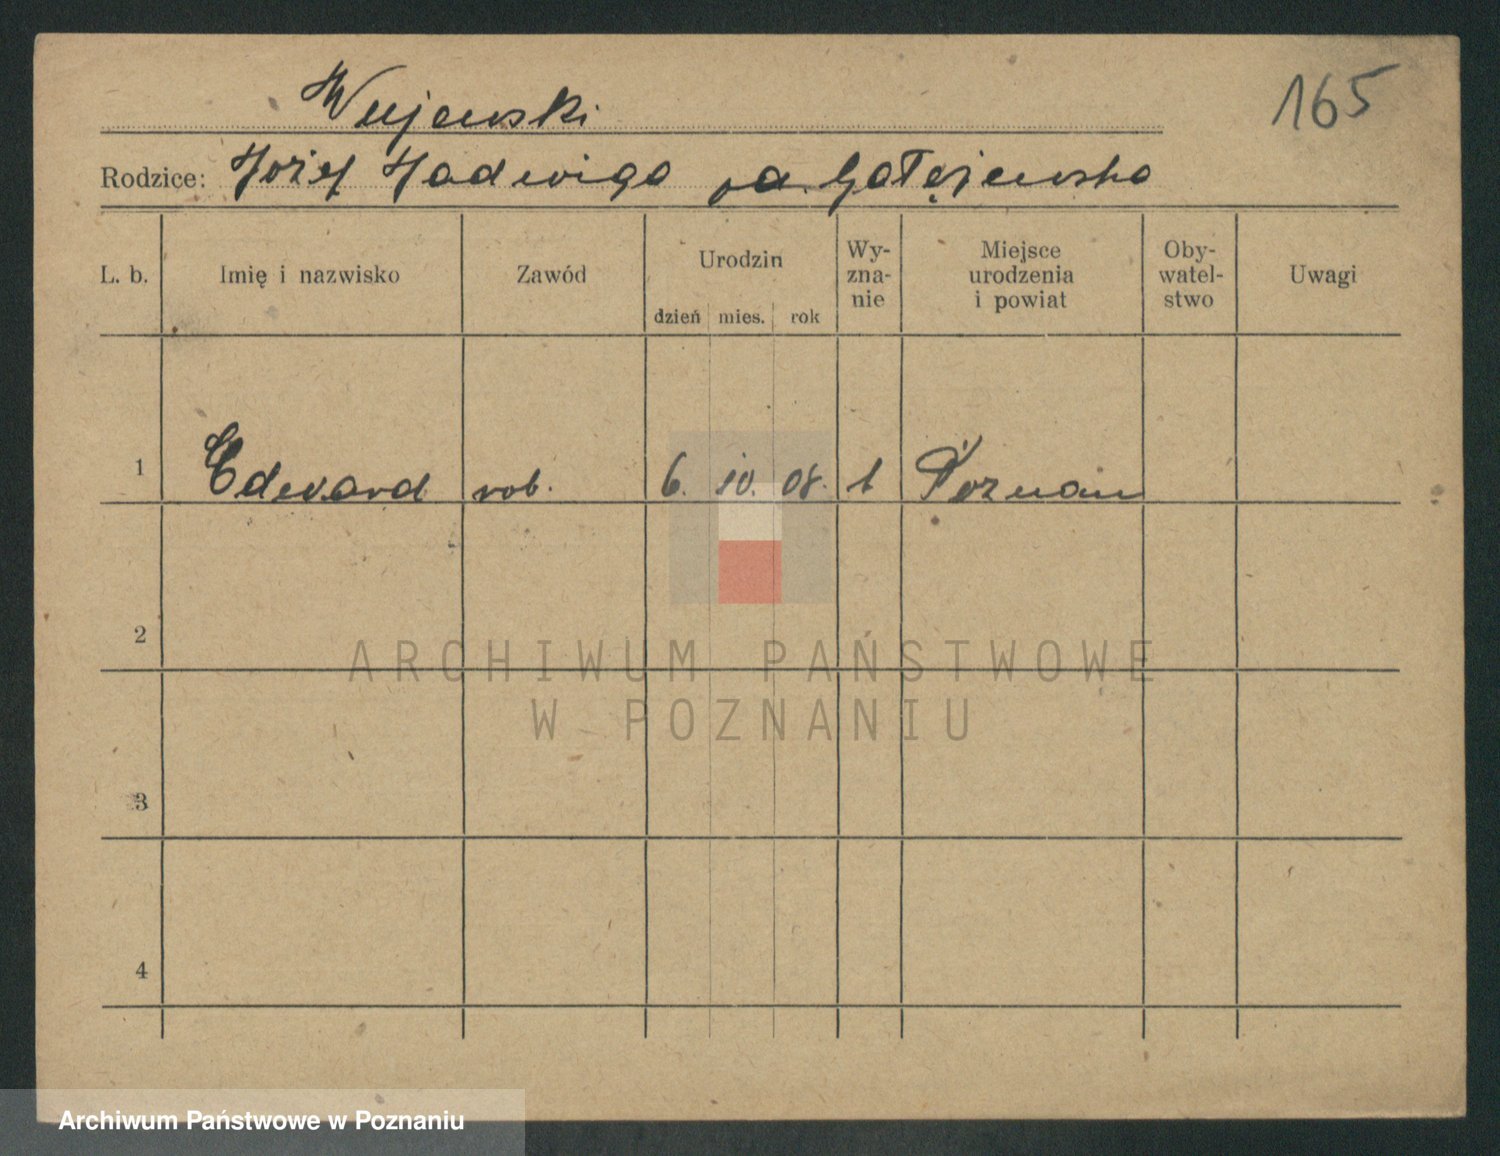 165
Wujewski
Rodzice: Józef Jadwiga
L. b. Imię i nazwisko Zawód Urodzin dzień mies. rok Wy-zna-nie Miejsce urodzenia i powiat Oby-watel-stwo Uwagi
1 Edward rob. 6. 10. 08. Poznań
2
ARCHIWUM PAŃSTWOWE
W POZNANIU
3
4
Archiwum Państwowe w Poznaniu